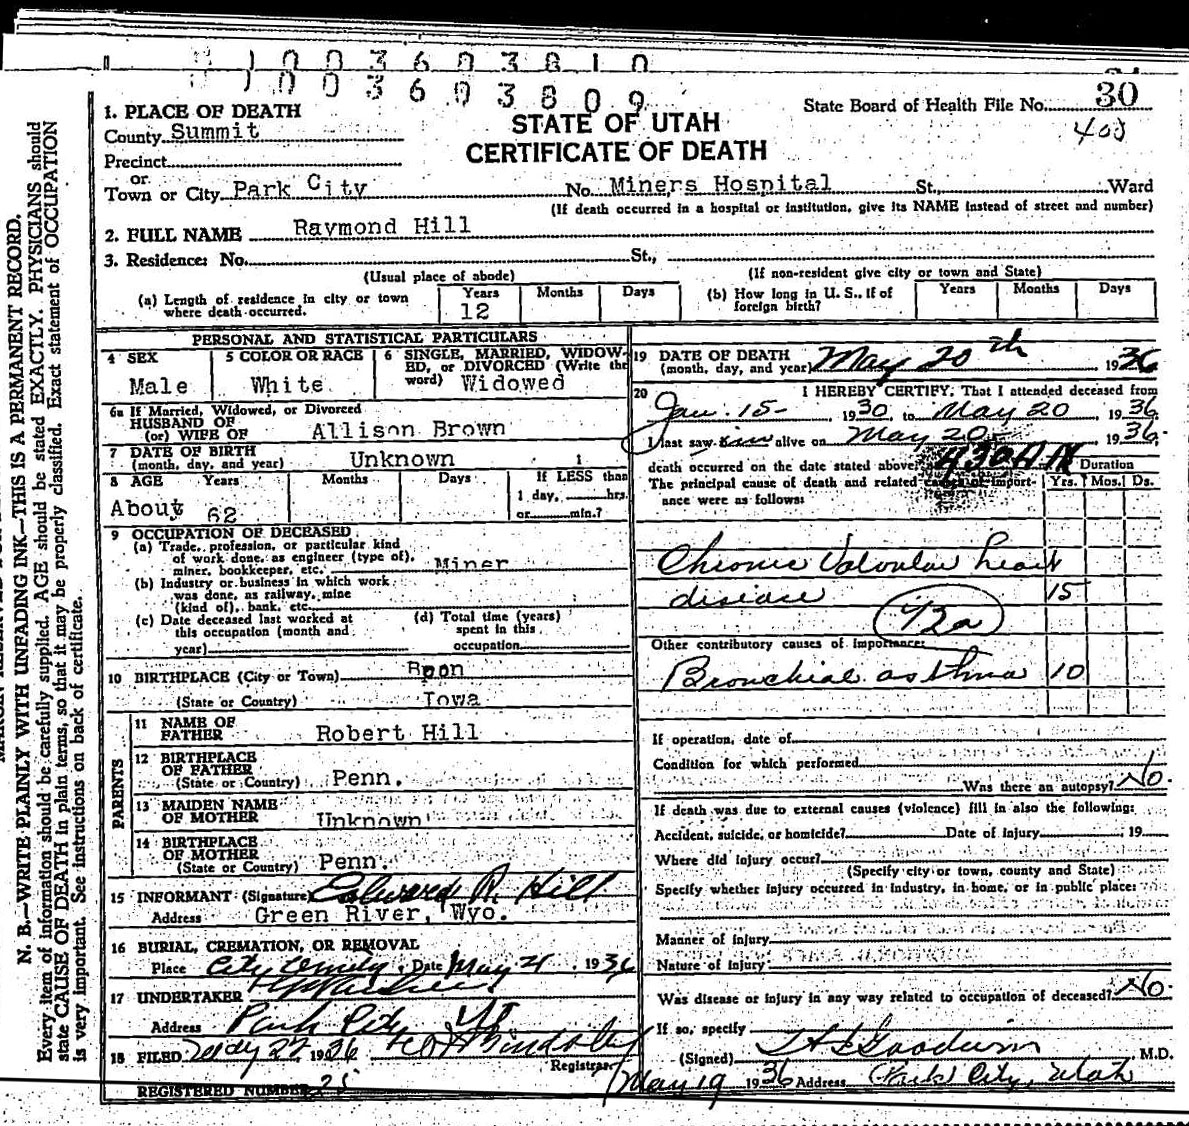 1 0 0 3 6 0 3 8 1 0
1 0 0 3 6 0 3 8 0 9
State Board of Health File No. 30
400
STATE OF UTAH
CERTIFICATE OF DEATH
1. PLACE OF DEATH
County Summit
Precinct
or
Town or City Park City No. Miners Hospital St., Ward
(If death occurred in a hospital or institution, give its NAME instead of street and number)
2. FULL NAME Raymond Hill
3. Residence: No. St.,
(Usual place of abode) (If non-resident give city or town and State)
(a) Length of residence in city or town where death occurred. Years 12 Months Days
(b) How long in U. S., if of foreign birth? Years Months Days
PERSONAL AND STATISTICAL PARTICULARS
4 SEX Male
5 COLOR OR RACE White
6 SINGLE, MARRIED, WIDOWED, or DIVORCED (Write the word) Widowed
6a If Married, Widowed, or Divorced
HUSBAND OF
(or) WIFE OF Allison Brown
7 DATE OF BIRTH
(month, day, and year) Unknown 1
8 AGE Years Months Days If LESS than
1 day, hrs.
or min.?
About 62
9 OCCUPATION OF DECEASED
(a) Trade, profession, or particular kind
of work done, as engineer (type of),
miner, bookkeeper, etc. Miner
(b) Industry or business in which work
was done, as railway, mine
(kind of), bank, etc.
(c) Date deceased last worked at
this occupation (month and
year)
(d) Total time (years)
spent in this
occupation
10 BIRTHPLACE (City or Town) Boon
(State or Country) Iowa
PARENTS
11 NAME OF
FATHER Robert Hill
12 BIRTHPLACE
OF FATHER
(State or Country) Penn.
13 MAIDEN NAME
OF MOTHER Unknown
14 BIRTHPLACE
OF MOTHER
(State or Country) Penn.
15 INFORMANT (Signature) Edward R. Hill
Address Green River, Wyo.
16 BURIAL, CREMATION, OR REMOVAL
Place City Date May 21, 1936
17 UNDERTAKER
Address Park City Ut
18 FILED May 22, 1936
Registrar
REGISTERED NUMBER 25
19 DATE OF DEATH
(month, day, and year) May 20th 1936
20 I HEREBY CERTIFY, That I attended deceased from
Jan. 15- 1930, to May 20, 1936
I last saw him alive on May 20, 1936.
death occurred on the date stated above, 430 AM Duration
The principal cause of death and related causes of import- Yrs. Mos. Ds.
ance were as follows:
Chronic Valvular heart
disease 15
92a
Other contributory causes of importance:
Bronchial asthma 10
If operation, date of
Condition for which performed
Was there an autopsy? No.
If death was due to external causes (violence) fill in also the following:
Accident, suicide, or homicide? Date of injury 19
Where did injury occur?
(Specify city or town, county and State)
Specify whether injury occurred in industry, in home, or in public place:
Manner of injury
Nature of injury
Was disease or injury in any way related to occupation of deceased? No.
If so, specify
(Signed) Goodwin M.D.
May 19 1936 Address Park City, Utah
N. B.—WRITE PLAINLY WITH UNFADING INK—THIS IS A PERMANENT RECORD.
Every item of information should be carefully supplied. AGE should be stated EXACTLY. PHYSICIANS should
state CAUSE OF DEATH in plain terms, so that it may be properly classified. Exact statement of OCCUPATION
is very important. See instructions on back of certificate.